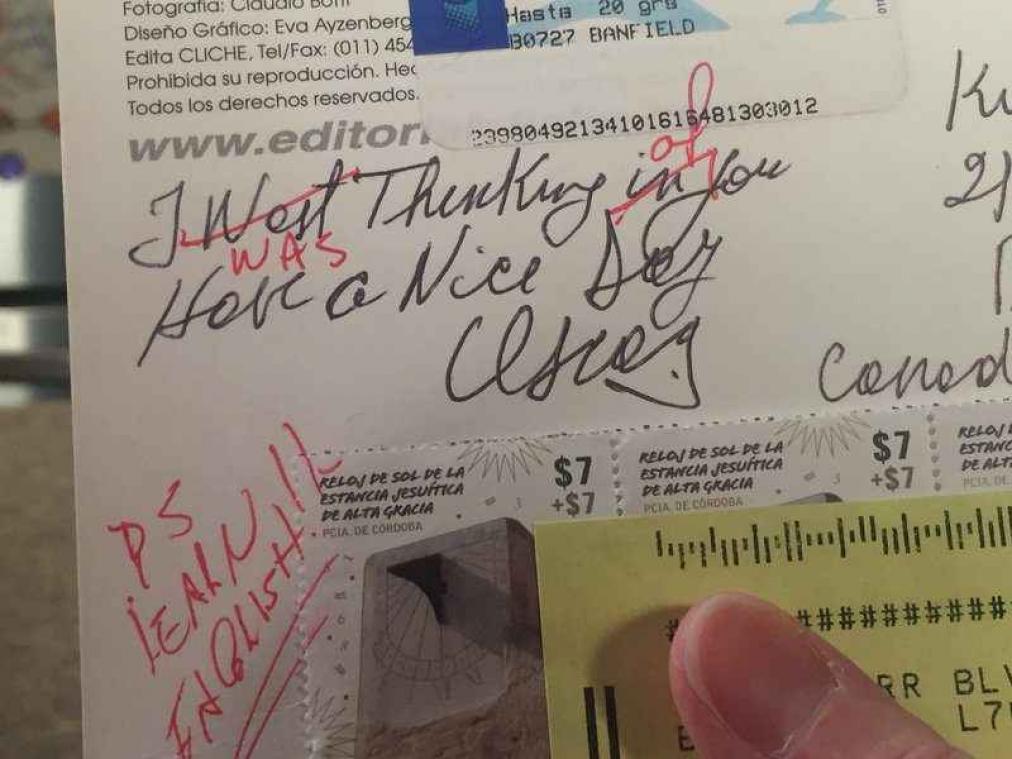 Fotografía: Claudio Bo
Diseño Gráfico: Eva Ayzenberg
Edita CLICHE, Tel/Fax: (011) 454
Prohibida su reproducción. Hec
Todos los derechos reservados.
www.editori
Hasta 20 grs
B0727 BANFIELD
23980492134101616481303012
I West Thinking in You
was
of
Have a Nice Day
Canad
PS
LEARN
ENGLISH!!!
RELOJ DE SOL DE LA
ESTANCIA JESUÍTICA
DE ALTA GRACIA
PCIA. DE CÓRDOBA
$7
+$7
RELOJ DE SOL DE LA
ESTANCIA JESUÍTICA
DE ALTA GRACIA
PCIA. DE CÓRDOBA
$7
+$7
RELOJ D
ESTANC
DE ALT
PCIA. DE
##########
RR BLV
L7